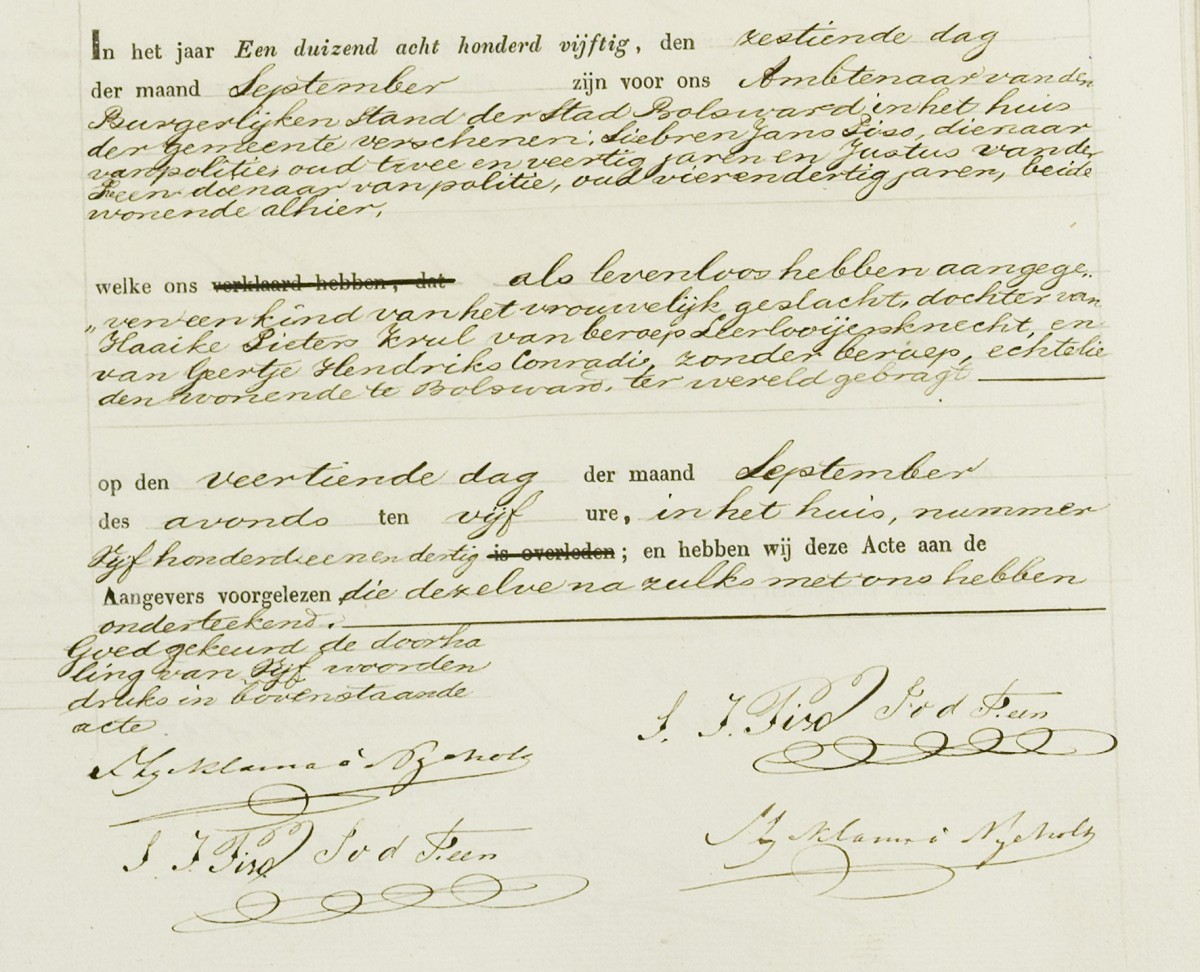 In het jaar Een duizend acht honderd vijftig, den zestiende dag
der maand September zijn voor ons Ambtenaar van den
Burgerlijken Stand der Stad Bolsward in het huis
der Gemeente verschenen: Siebren Jans Piso, dienaar
van politie, oud twee en veertig jaren en Justus van der
Feen dienaar van politie, oud vierendertig jaren, beide
wonende alhier,
welke ons verklaard hebben, dat als levenloos hebben aangege„
„ven een kind van het vrouwelijk geslacht, dochter van
Haaike Pieters Krul van beroep Leerlooijersknecht, en
van Geertje Hendriks Conradi, zonder beroep, echtelie
den wonende te Bolsward. ter wereld gebragt
op den veertiende dag der maand September
des avonds ten vijf ure, in het huis, nummer
Vijf honderd eenendertig is overleden; en hebben wij deze Acte aan de
Aangevers voorgelezen, die dezelve na zulks met ons hebben
onderteekend.
Goedgekeurd de doorha
ling van Vijf woorden
druks in bovenstaande
acte.
S. J. Piso J v d Feen
Myklama à Nyeholt
S. J. Piso J v d Feen
Myklama à Nyeholt